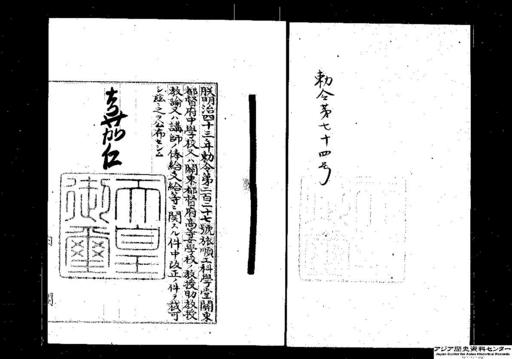 勅令第七十四号
朕明治四十三年勅令第三百二十七號旅順工科學堂關東
都督府中學校又ハ關東都督府高等女學校ノ教授助教授
教諭又ハ講師ノ俸給支給等ニ關スル件中改正ノ件ヲ裁可
シ茲ニ之ヲ公布セシム
嘉仁
天皇
御璽
アジア歴史資料センター
Japan Center for Asian Historical Records